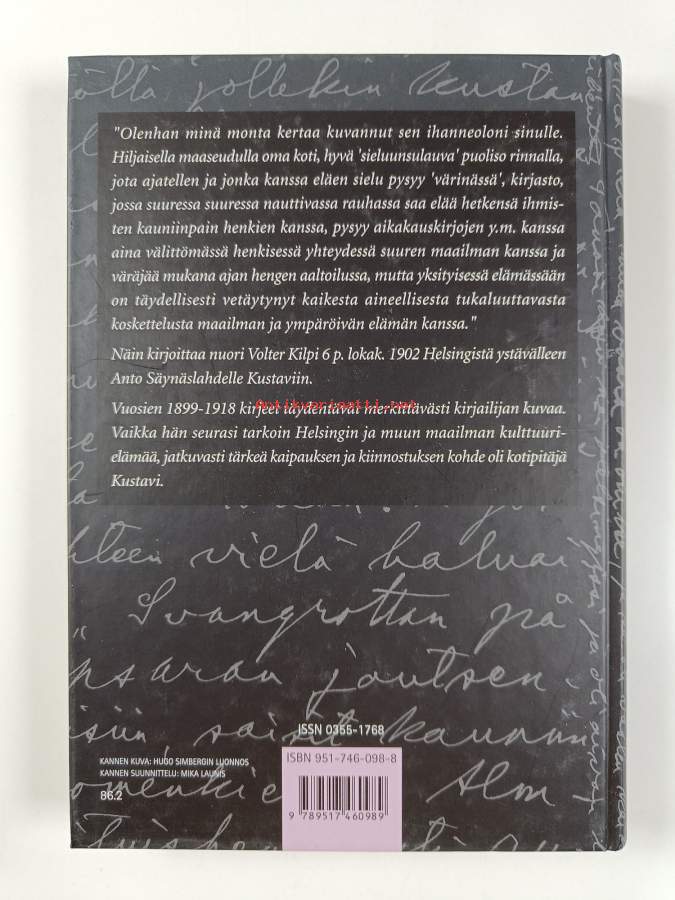 ällä jollekin kustan
"Olenhan minä monta kertaa kuvannut sen ihanneoloni sinulle.
Hiljaisella maaseudulla oma koti, hyvä 'sieluunsulauva' puoliso rinnalla,
jota ajatellen ja jonka kanssa eläen sielu pysyy 'värinässä', kirjasto,
jossa suuressa suuressa nauttivassa rauhassa saa elää hetkensä ihmis-
ten kauniinpain henkien kanssa, pysyy aikakauskirjojen y.m. kanssa
aina välittömässä henkisessä yhteydessä suuren maailman kanssa ja
väräjää mukana ajan hengen aaltoilussa, mutta yksityisessä elämässään
on täydellisesti vetäytynyt kaikesta aineellisesta tukaluuttavasta
koskettelusta maailman ja ympäröivän elämän kanssa."
Näin kirjoittaa nuori Volter Kilpi 6 p. lokak. 1902 Helsingistä ystävälleen
Anto Säynäslahdelle Kustaviin.
Antikvariaatti.net
Vuosien 1899-1918 kirjeet täydentävät merkittävästi kirjailijan kuvaa.
Vaikka hän seurasi tarkoin Helsingin ja muun maailman kulttuuri-
elämää, jatkuvasti tärkeä kaipauksen ja kiinnostuksen kohde oli kotipitäjä
Kustavi.
hteen vielä haluai
Svangrottan på
joutsen,
saisit kaunun
Alm
ISSN 0355-1768
ISBN 951-746-098-8
9 789517 460989
KANNEN KUVA: HUGO SIMBERGIN LUONNOS
KANNEN SUUNNITTELU: MIKA LAUNIS
86.2